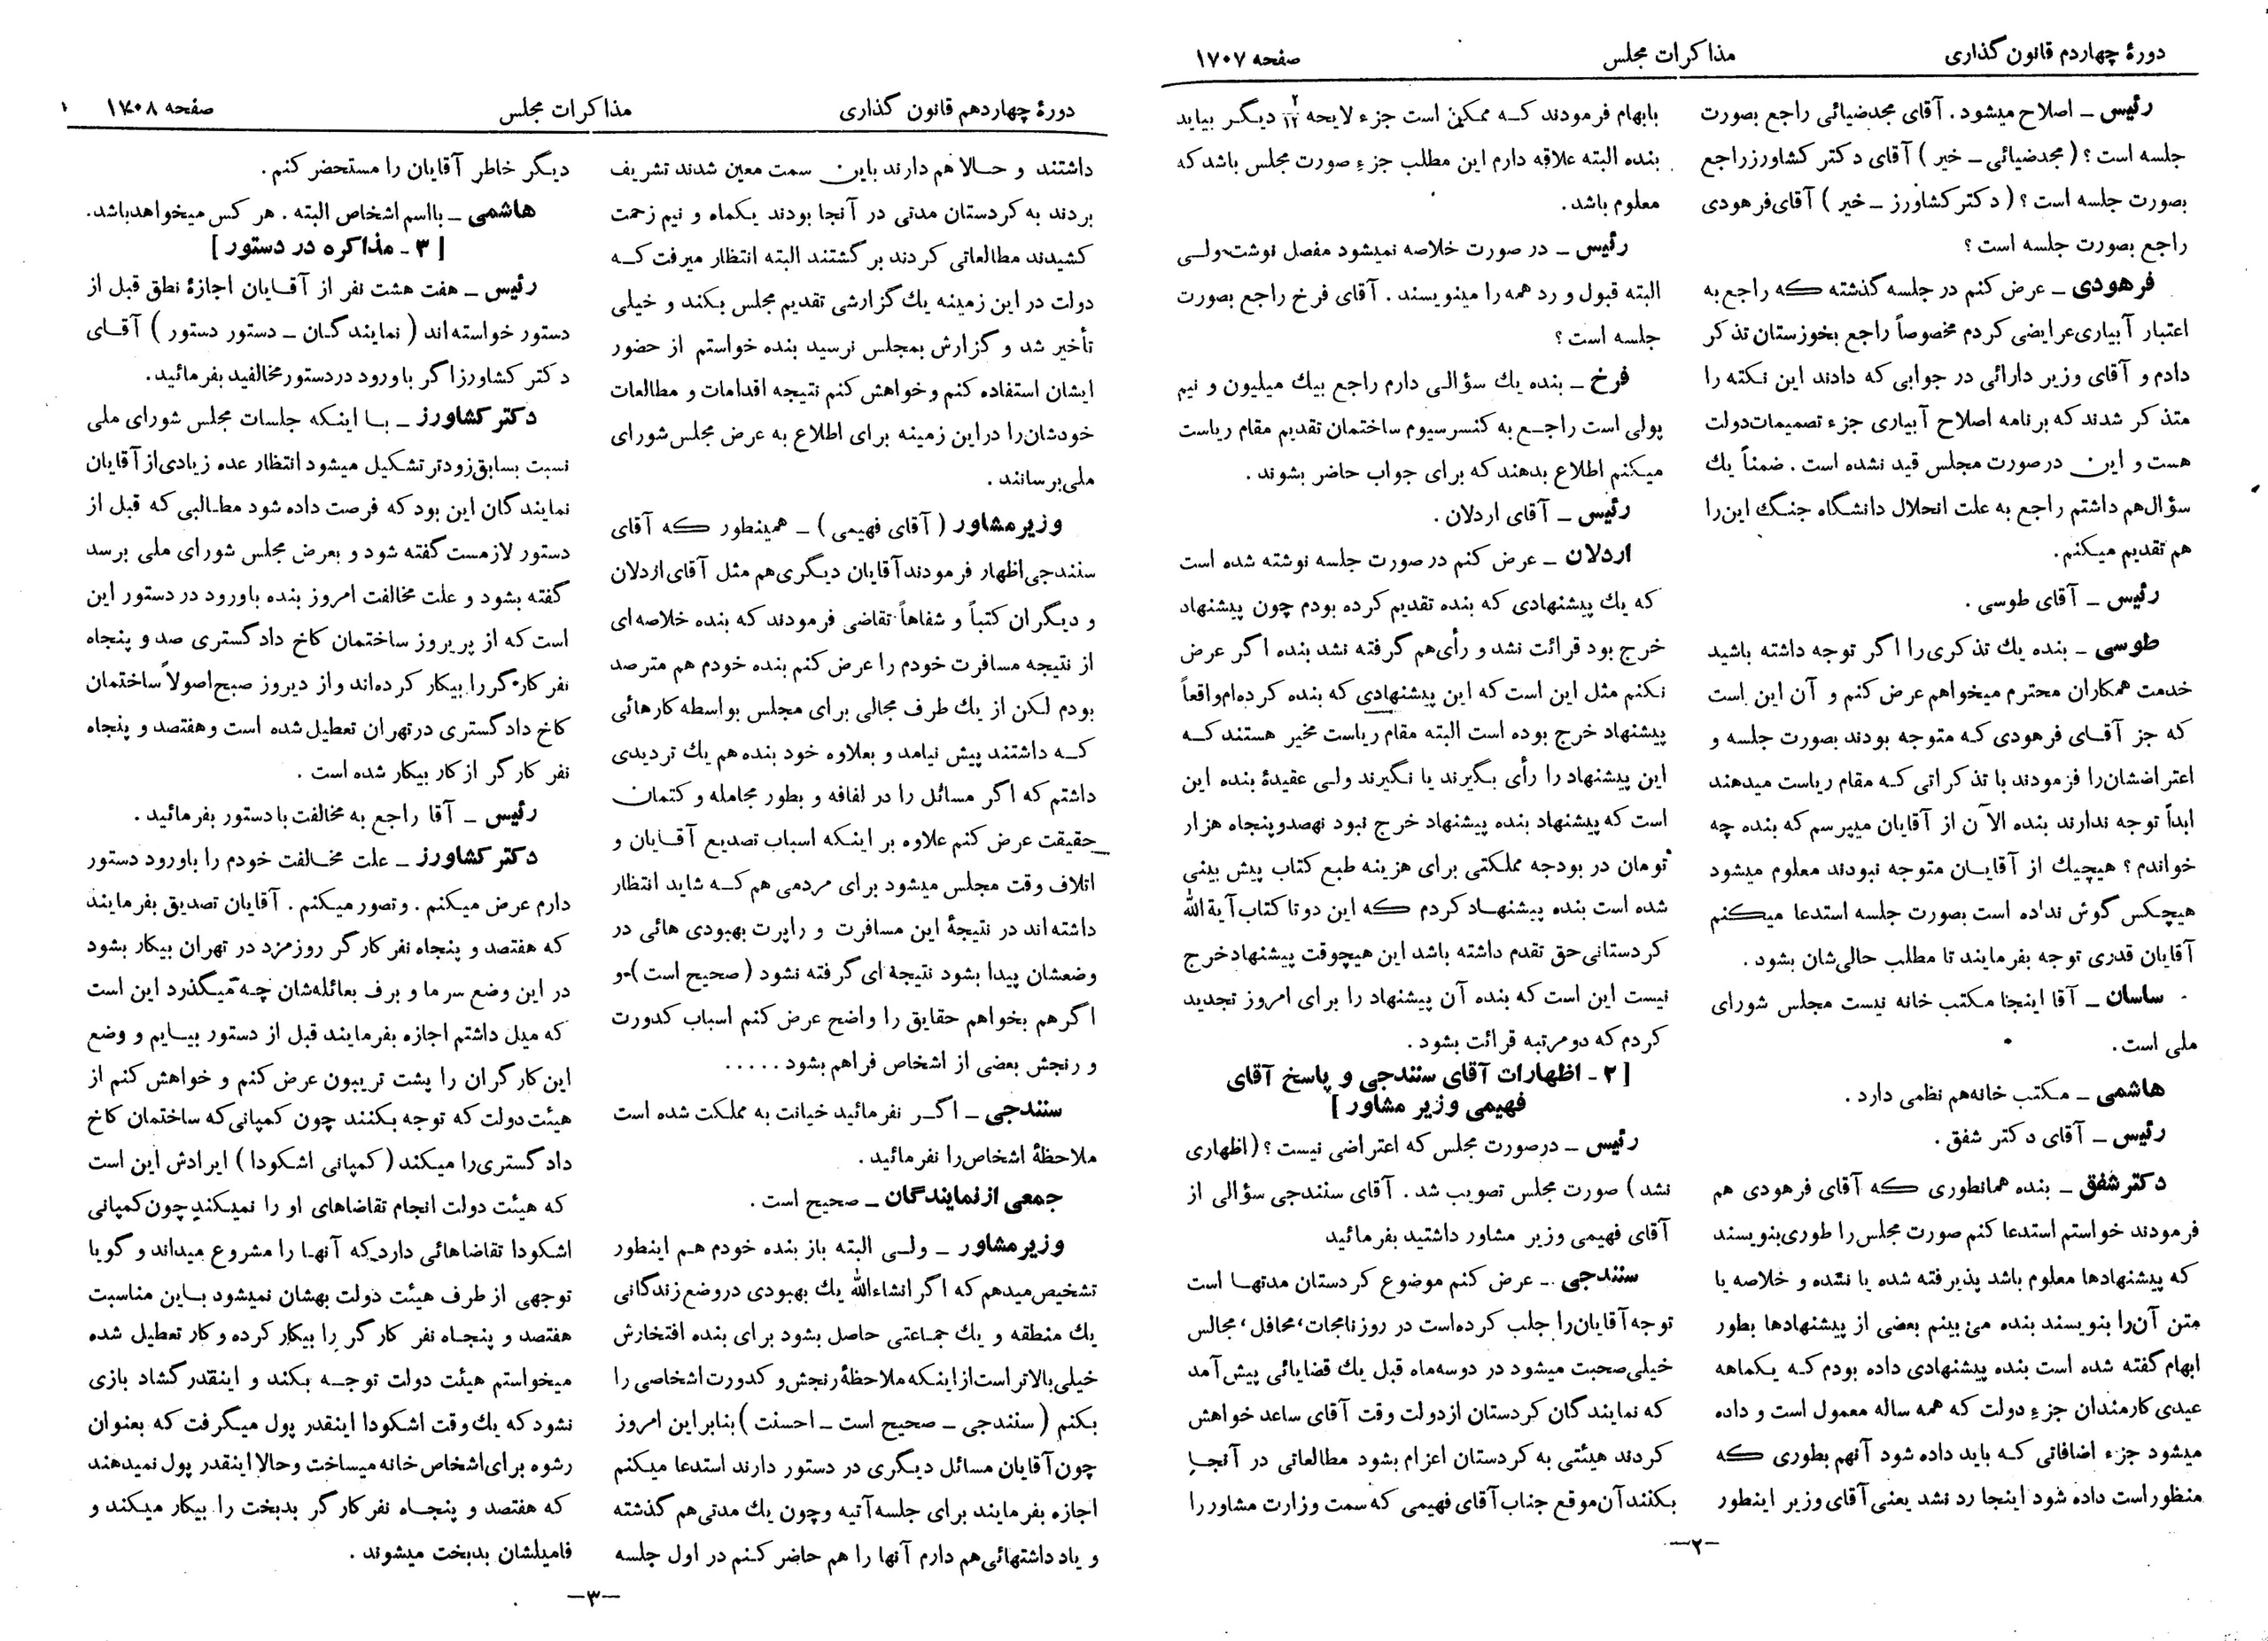 دورهٔ چهاردم قانون گذاری
مذاکرات مجلس
صفحه ۱۷۰۷
رئیس ــ اصلاح میشود. آقای مجدضیائی راجع بصورت
جلسه است؟ (مجدضیائی ــ خیر) آقای دکتر کشاورز راجع
بصورت جلسه است؟ (دکتر کشاورز ــ خیر) آقای فرهودی
راجع بصورت جلسه است؟
فرهودی ــ عرض کنم در جلسه گذشته که راجع به
اعتبار آبیاری عرایضی کردم مخصوصاً راجع بخوزستان تذکر
دادم و آقای وزیر دارائی در جوابی که دادند این نکته را
متذکر شدند که برنامه اصلاح آبیاری جزء تصمیمات دولت
هست و این در صورت مجلس قید نشده است. ضمناً یك
سؤال هم داشتم راجع به علت انحلال دانشگاه جنگ این را
هم تقدیم میکنم.
رئیس ــ آقای طوسی.
طوسی ــ بنده یك تذکری را اگر توجه داشته باشید
خدمت همکاران محترم میخواهم عرض کنم و آن این است
که جز آقای فرهودی که متوجه بودند بصورت جلسه و
اعتراضشان را فرمودند با تذکراتی که مقام ریاست میدهند
ابداً توجه ندارند بنده الآن از آقایان میپرسم که بنده چه
خواندم؟ هیچیك از آقایان متوجه نبودند معلوم میشود
هیچکس گوش نداده است بصورت جلسه استدعا میکنم
آقایان قدری توجه بفرمایند تا مطلب حالی‌شان بشود.
ساسان ــ آقا اینجا مکتب خانه نیست مجلس شورای
ملی است.
هاشمی ــ مکتب خانه هم نظمی دارد.
رئیس ــ آقای دکتر شفق.
دکتر شفق ــ بنده همانطوری که آقای فرهودی هم
فرمودند خواستم استدعا کنم صورت مجلس را طوری بنویسند
که پیشنهادها معلوم باشد پذیرفته شده یا نشده و خلاصه یا
متن آن را بنویسند بنده می بینم بعضی از پیشنهادها بطور
ابهام گفته شده است بنده پیشنهادی داده بودم که یکماهه
عیدی کارمندان جزء دولت که همه ساله معمول است و داده
میشود جزء اضافاتی که باید داده شود آنهم بطوری که
منظور است داده شود اینجا رد نشد یعنی آقای وزیر اینطور
بابهام فرمودند که ممکن است جزء لایحه ۲/۱۲ دیگر بیاید
بنده البته علاقه دارم این مطلب جزء صورت مجلس باشد که
معلوم باشد.
رئیس ــ در صورت خلاصه نمیشود مفصل نوشت ولی
البته قبول و رد همه را مینویسند. آقای فرخ راجع بصورت
جلسه است؟
فرخ ــ بنده یك سؤالی دارم راجع بیك میلیون و نیم
پولی است راجع به کنسرسیوم ساختمان تقدیم مقام ریاست
میکنم اطلاع بدهند که برای جواب حاضر بشوند.
رئیس ــ آقای اردلان.
اردلان ــ عرض کنم در صورت جلسه نوشته شده است
که یك پیشنهادی که بنده تقدیم کرده بودم چون پیشنهاد
خرج بود قرائت نشد و رأی هم گرفته نشد بنده اگر عرض
نکنم مثل این است که این پیشنهادی که بنده کرده‌ام واقعاً
پیشنهاد خرج بوده است البته مقام ریاست مخیر هستند که
این پیشنهاد را رأی بگیرند یا نگیرند ولی عقیدهٔ بنده این
است که پیشنهاد بنده پیشنهاد خرج نبود نهصد و پنجاه هزار
تومان در بودجه مملکتی برای هزینه طبع کتاب پیش بینی
شده است بنده پیشنهاد کردم که این دو تا کتاب آیة الله
کردستانی حق تقدم داشته باشد این هیچوقت پیشنهاد خرج
نیست این است که بنده آن پیشنهاد را برای امروز تجدید
کردم که دو مرتبه قرائت بشود.
[۲ - اظهارات آقای سنندجی و پاسخ آقای
فهیمی وزیر مشاور]
رئیس ــ در صورت مجلس که اعتراضی نیست؟ (اظهاری
نشد) صورت مجلس تصویب شد. آقای سنندجی سؤالی از
آقای فهیمی وزیر مشاور داشتید بفرمائید
سنندجی ــ عرض کنم موضوع کردستان مدتها است
توجه آقایان را جلب کرده است در روزنامجات، محافل، مجالس
خیلی صحبت میشود در دوسه ماه قبل یك قضایائی پیش آمد
که نمایندگان کردستان از دولت وقت آقای ساعد خواهش
کردند هیئتی به کردستان اعزام بشود مطالعاتی در آنجا
بکنند آن موقع جناب آقای فهیمی که سمت وزارت مشاور را
ــ۲ــ
دورهٔ چهاردهم قانون گذاری
مذاکرات مجلس
صفحه ۱۷۰۸
داشتند و حالا هم دارند باین سمت معین شدند تشریف
بردند به کردستان مدتی در آنجا بودند یکماه و نیم زحمت
کشیدند مطالعاتی کردند برگشتند البته انتظار میرفت که
دولت در این زمینه یك گزارشی تقدیم مجلس بکند و خیلی
تأخیر شد و گزارش بمجلس نرسید بنده خواستم از حضور
ایشان استفاده کنم و خواهش کنم نتیجه اقدامات و مطالعات
خودشان را در این زمینه برای اطلاع به عرض مجلس شورای
ملی برسانند.
وزیر مشاور (آقای فهیمی) ــ همینطور که آقای
سنندجی اظهار فرمودند آقایان دیگری هم مثل آقای اردلان
و دیگران کتباً و شفاهاً تقاضی فرمودند که بنده خلاصه‌ای
از نتیجه مسافرت خودم را عرض کنم بنده خودم هم مترصد
بودم لکن از یك طرف مجالی برای مجلس بواسطه کارهائی
که داشتند پیش نیامد و بعلاوه خود بنده هم یك تردیدی
داشتم که اگر مسائل را در لفافه و بطور مجامله و کتمان
حقیقت عرض کنم علاوه بر اینکه اسباب تصدیع آقایان و
اتلاف وقت مجلس میشود برای مردمی هم که شاید انتظار
داشته‌اند در نتیجهٔ این مسافرت و راپرت بهبودی هائی در
وضعشان پیدا بشود نتیجه‌ای گرفته نشود (صحیح است) و
اگر هم بخواهم حقایق را واضح عرض کنم اسباب کدورت
و رنجش بعضی از اشخاص فراهم بشود.....
سنندجی ــ اگر نفرمائید خیانت به مملکت شده است
ملاحظهٔ اشخاص را نفرمائید.
جمعی از نمایندگان ــ صحیح است.
وزیر مشاور ــ ولی البته باز بنده خودم هم اینطور
تشخیص میدهم که اگر انشاءالله یك بهبودی در وضع زندگانی
یك منطقه و یك جماعتی حاصل بشود برای بنده افتخارش
خیلی بالاتر است از اینکه ملاحظهٔ رنجش و کدورت اشخاصی را
بکنم (سنندجی ــ صحیح است ــ احسنت) بنابراین امروز
چون آقایان مسائل دیگری در دستور دارند استدعا میکنم
اجازه بفرمایند برای جلسه آتیه و چون یك مدتی هم گذشته
و یادداشتهائی هم دارم آنها را هم حاضر کنم در اول جلسه
دیگر خاطر آقایان را مستحضر کنم.
هاشمی ــ بااسم اشخاص البته. هر کس میخواهد باشد.
[۳ - مذاکره در دستور]
رئیس ــ هفت هشت نفر از آقایان اجازهٔ نطق قبل از
دستور خواسته‌اند (نمایندگان ــ دستور دستور) آقای
دکتر کشاورز اگر با ورود در دستور مخالفید بفرمائید.
دکتر کشاورز ــ با اینکه جلسات مجلس شورای ملی
نسبت بسابق زودتر تشکیل میشود انتظار عده زیادی از آقایان
نمایندگان این بود که فرصت داده شود مطالبی که قبل از
دستور لازمست گفته شود و بعرض مجلس شورای ملی برسد
گفته بشود و علت مخالفت امروز بنده باورود در دستور این
است که از پریروز ساختمان کاخ دادگستری صد و پنجاه
نفر کارگر را بیکار کرده‌اند و از دیروز صبح اصولاً ساختمان
کاخ دادگستری در تهران تعطیل شده است و هفتصد و پنجاه
نفر کارگر از کار بیکار شده است.
رئیس ــ آقا راجع به مخالفت با دستور بفرمائید.
دکتر کشاورز ــ علت مخالفت خودم را باورود دستور
دارم عرض میکنم. و تصور میکنم. آقایان تصدیق بفرمایند
که هفتصد و پنجاه نفر کارگر روزمزد در تهران بیکار بشود
در این وضع سرما و برف بعائله‌شان چه میگذرد این است
که میل داشتم اجازه بفرمایند قبل از دستور بیایم و وضع
این کارگران را پشت تریبون عرض کنم و خواهش کنم از
هیئت دولت که توجه بکنند چون کمپانی که ساختمان کاخ
دادگستری را میکند (کمپانی اشکودا) ایرادش این است
که هیئت دولت انجام تقاضاهای او را نمیکند چون کمپانی
اشکودا تقاضاهائی دارد که آنها را مشروع میداند و گویا
توجهی از طرف هیئت دولت بهشان نمیشود باین مناسبت
هفتصد و پنجاه نفر کارگر را بیکار کرده و کار تعطیل شده
میخواستم هیئت دولت توجه بکند و اینقدر گشاد بازی
نشود که یك وقت اشکودا اینقدر پول میگرفت که بعنوان
رشوه برای اشخاص خانه میساخت و حالا اینقدر پول نمیدهند
که هفتصد و پنجاه نفر کارگر بدبخت را بیکار میکند و
فامیلشان بدبخت میشوند.
ــ۳ــ